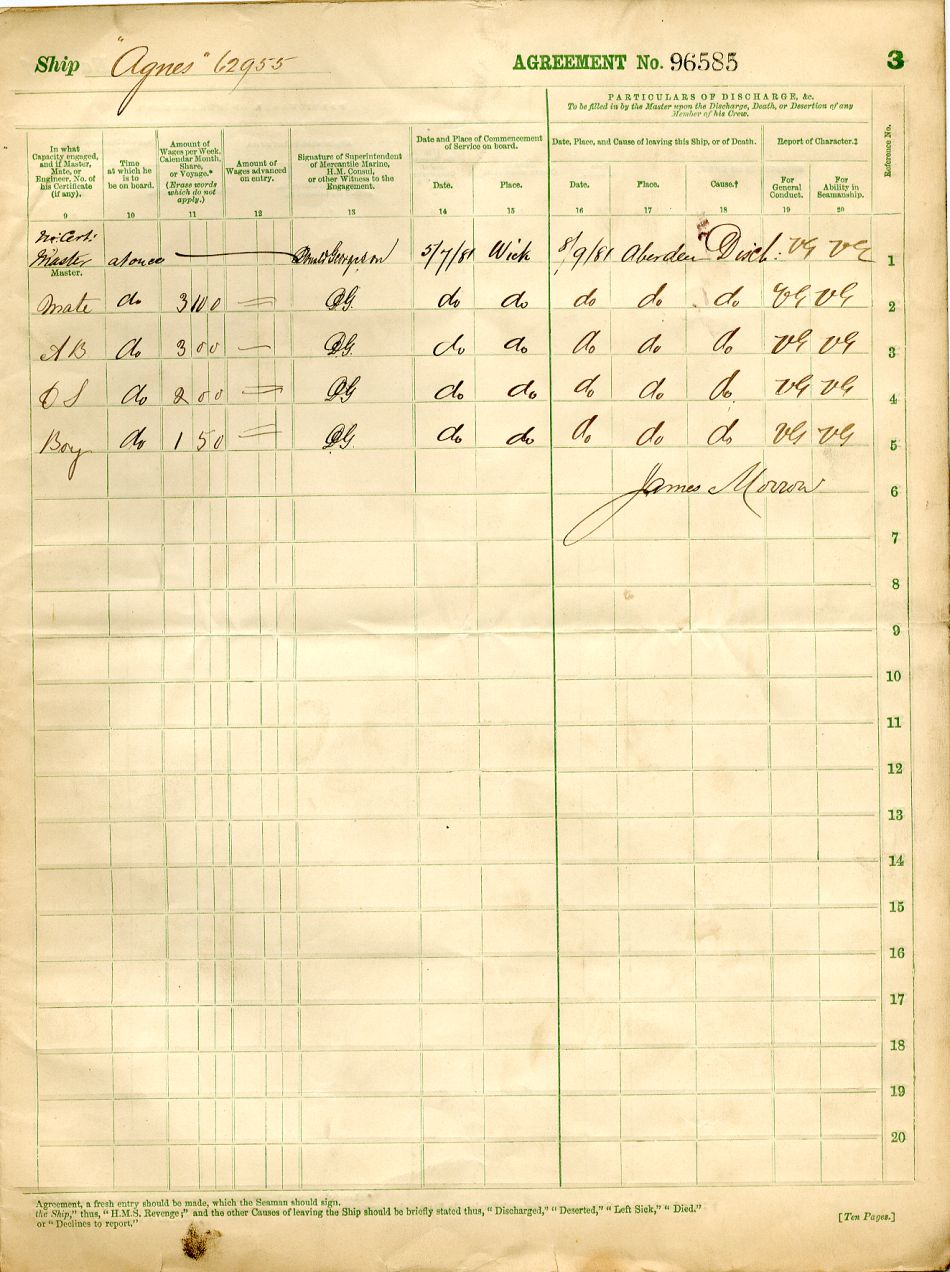 Ship "Agnes" 62955 AGREEMENT No. 96585 3
PARTICULARS OF DISCHARGE, &c.
To be filled in by the Master upon the Discharge, Death, or Desertion of any
Member of his Crew.
In what Capacity engaged, and if Master, Mate, or Engineer, No. of his Certificate (if any).
Time at which he is to be on board.
Amount of Wages per Week, Calendar Month, Share, or Voyage.* (Erase words which do not apply.)
Amount of Wages advanced on entry.
Signature of Superintendent of Mercantile Marine, H.M. Consul, or other Witness to the Engagement.
Date and Place of Commencement of Service on board.
Date. Place.
Date, Place, and Cause of leaving this Ship, or of Death.
Date. Place. Cause.†
Report of Character.‡
For General Conduct. For Ability in Seamanship.
Reference No.
9 10 11 12 13 14 15 16 17 18 19 20
No Cert:
Master at once 5/7/81 Wick 8/9/81 Aberdeen Disch: VG VG 1
Master.
Mate do 3 10 0 DG. do do do do do VG VG 2
AB do 3 0 0 DG. do do do do do VG VG 3
OS do 2 0 0 DG do do do do do VG VG 4
Boy do 1 5 0 DG do do do do do VG VG 5
James Morrow 6
7
8
9
10
11
12
13
14
15
16
17
18
19
20
Agreement, a fresh entry should be made, which the Seaman should sign.
the Ship," thus, "H.M.S. Revenge;" and the other Causes of leaving the Ship should be briefly stated thus, "Discharged," "Deserted," "Left Sick," "Died."
or "Declines to report."
[Ten Pages.]